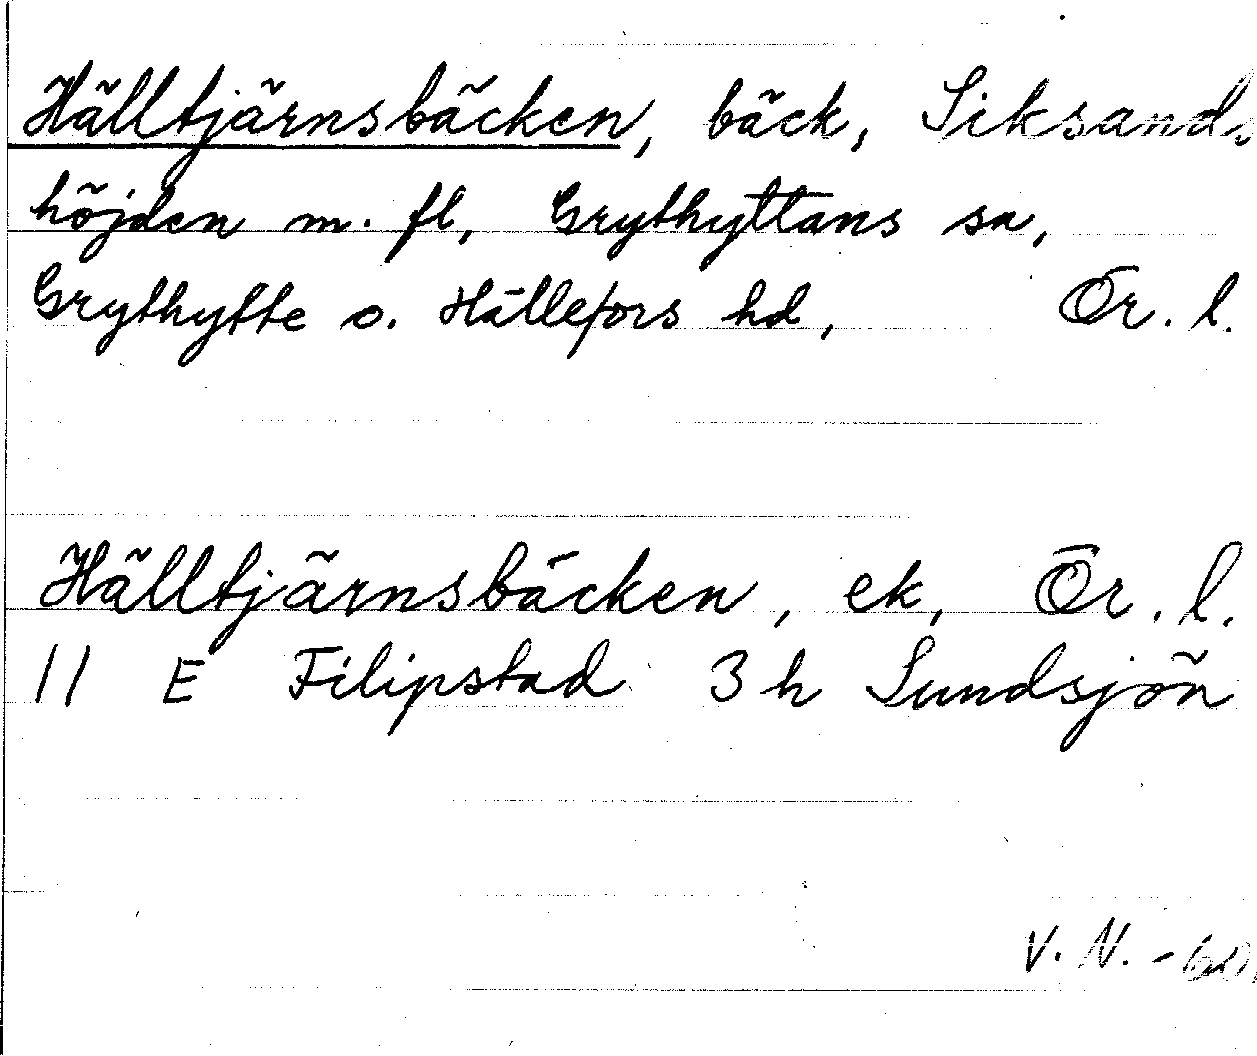 Hälltjärnsbäcken, bäck, Siksands
höjden m. fl, Grythyttans sn,
Grythytte o. Hällefors hd, Ör. l.
Hälltjärnsbäcken, ek, Ör. l.
11 E Filipstad 3 h Sundsjön
V. N. - 60.